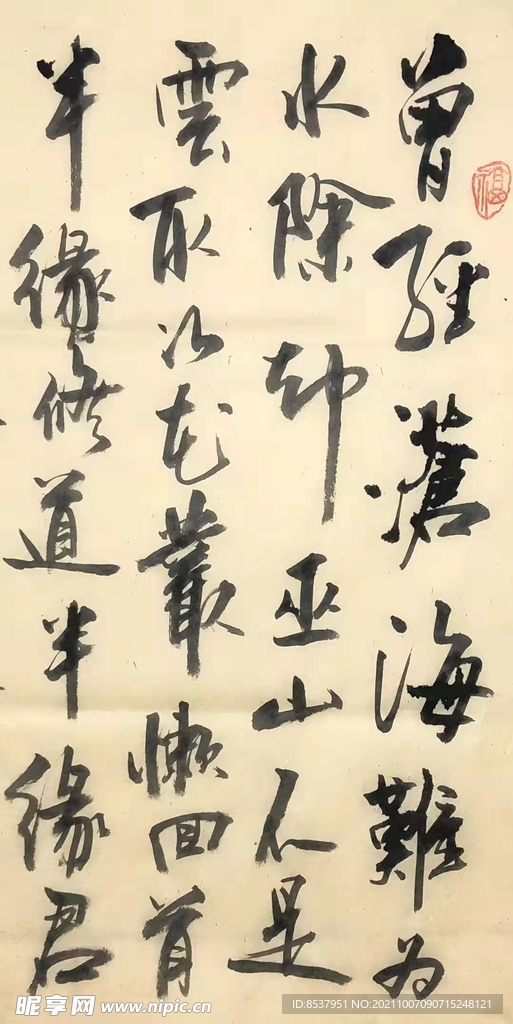 曾經滄海難为
水除却巫山不是
雲取次花叢懶回首
半緣修道半緣君
福
昵享网 www.nipic.cn
ID:8537951 NO:20211007090715248121